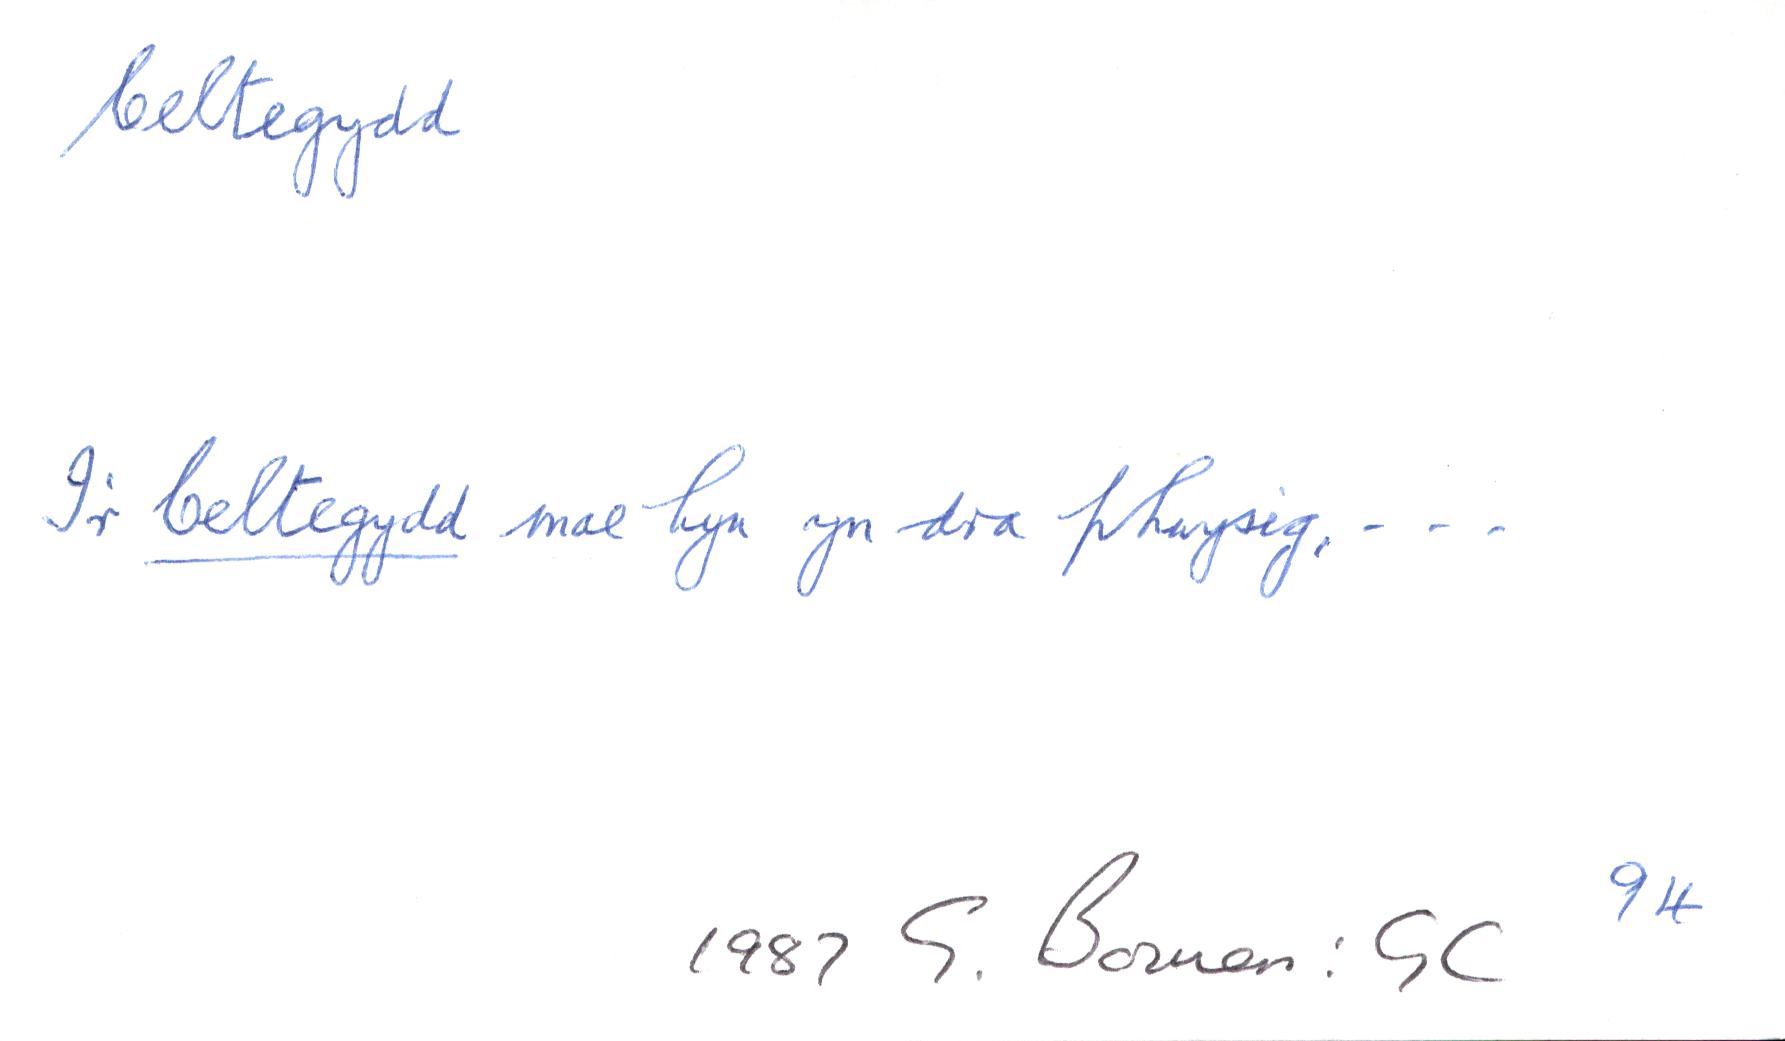 Celtegydd
I'r Celtegydd mae hyn yn dra phwysig, - - -
1987 G. Bowen: GC 94